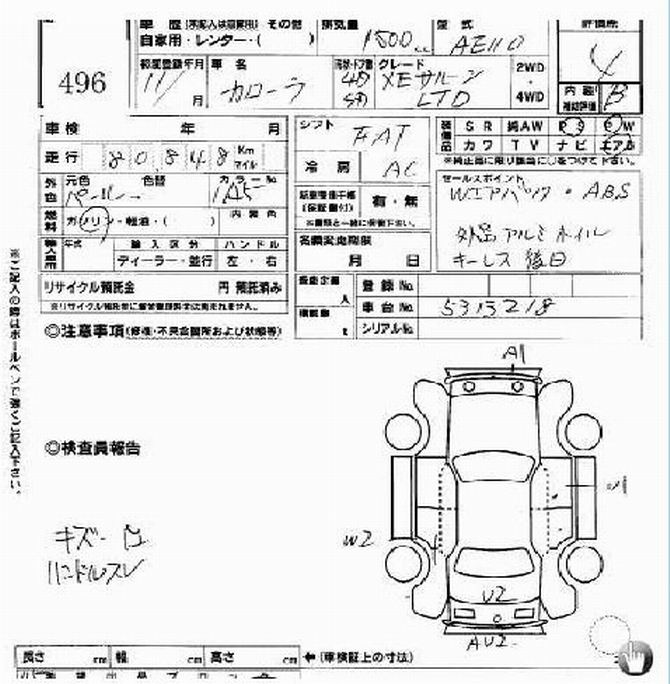 496
車歴(未記入は自家用) その他
自家用・レンター・( )
排気量 1500 cc
型式 AE110
評価点 4
初度登録年月 11/ 月
車名 カローラ
形状・ドア数 4D 5D
グレード XEサルーン LTD
2WD・4WD
内装 補助評価 B
車検 年 月
走行 80,848 Km マイル
外色 元色 パール 色替 カラーNo.
燃料 ガソリン・軽油・( ) 内装色
輸入車用 年式 輸入区分 ハンドル
ディーラー・並行 左・右
リサイクル預託金 円 預託済み
シフト FAT
冷房 AC
有・無
※書類と一緒に保管下さい。
名義変更期限
月 日
装備品 SR 純AW PS PW
カワ TV ナビ エアB
※純正品に限り該当に○をつけて下さい。
セールスポイント
Wエアバッグ・ABS
外品アルミホイル
キーレス後日
乗車定員 人
積載量 t
登録No.
車台No. 5315218
シリアルNo.
◎注意事項(修復・不具合箇所および状態等)
※ご記入の際はボールペンで強くご記入下さい。
◎検査員報告
キズ
ハンドルスレ
A1
W2
U2
AU2
長さ cm 幅 cm 高さ cm ←(車検証上の寸法)